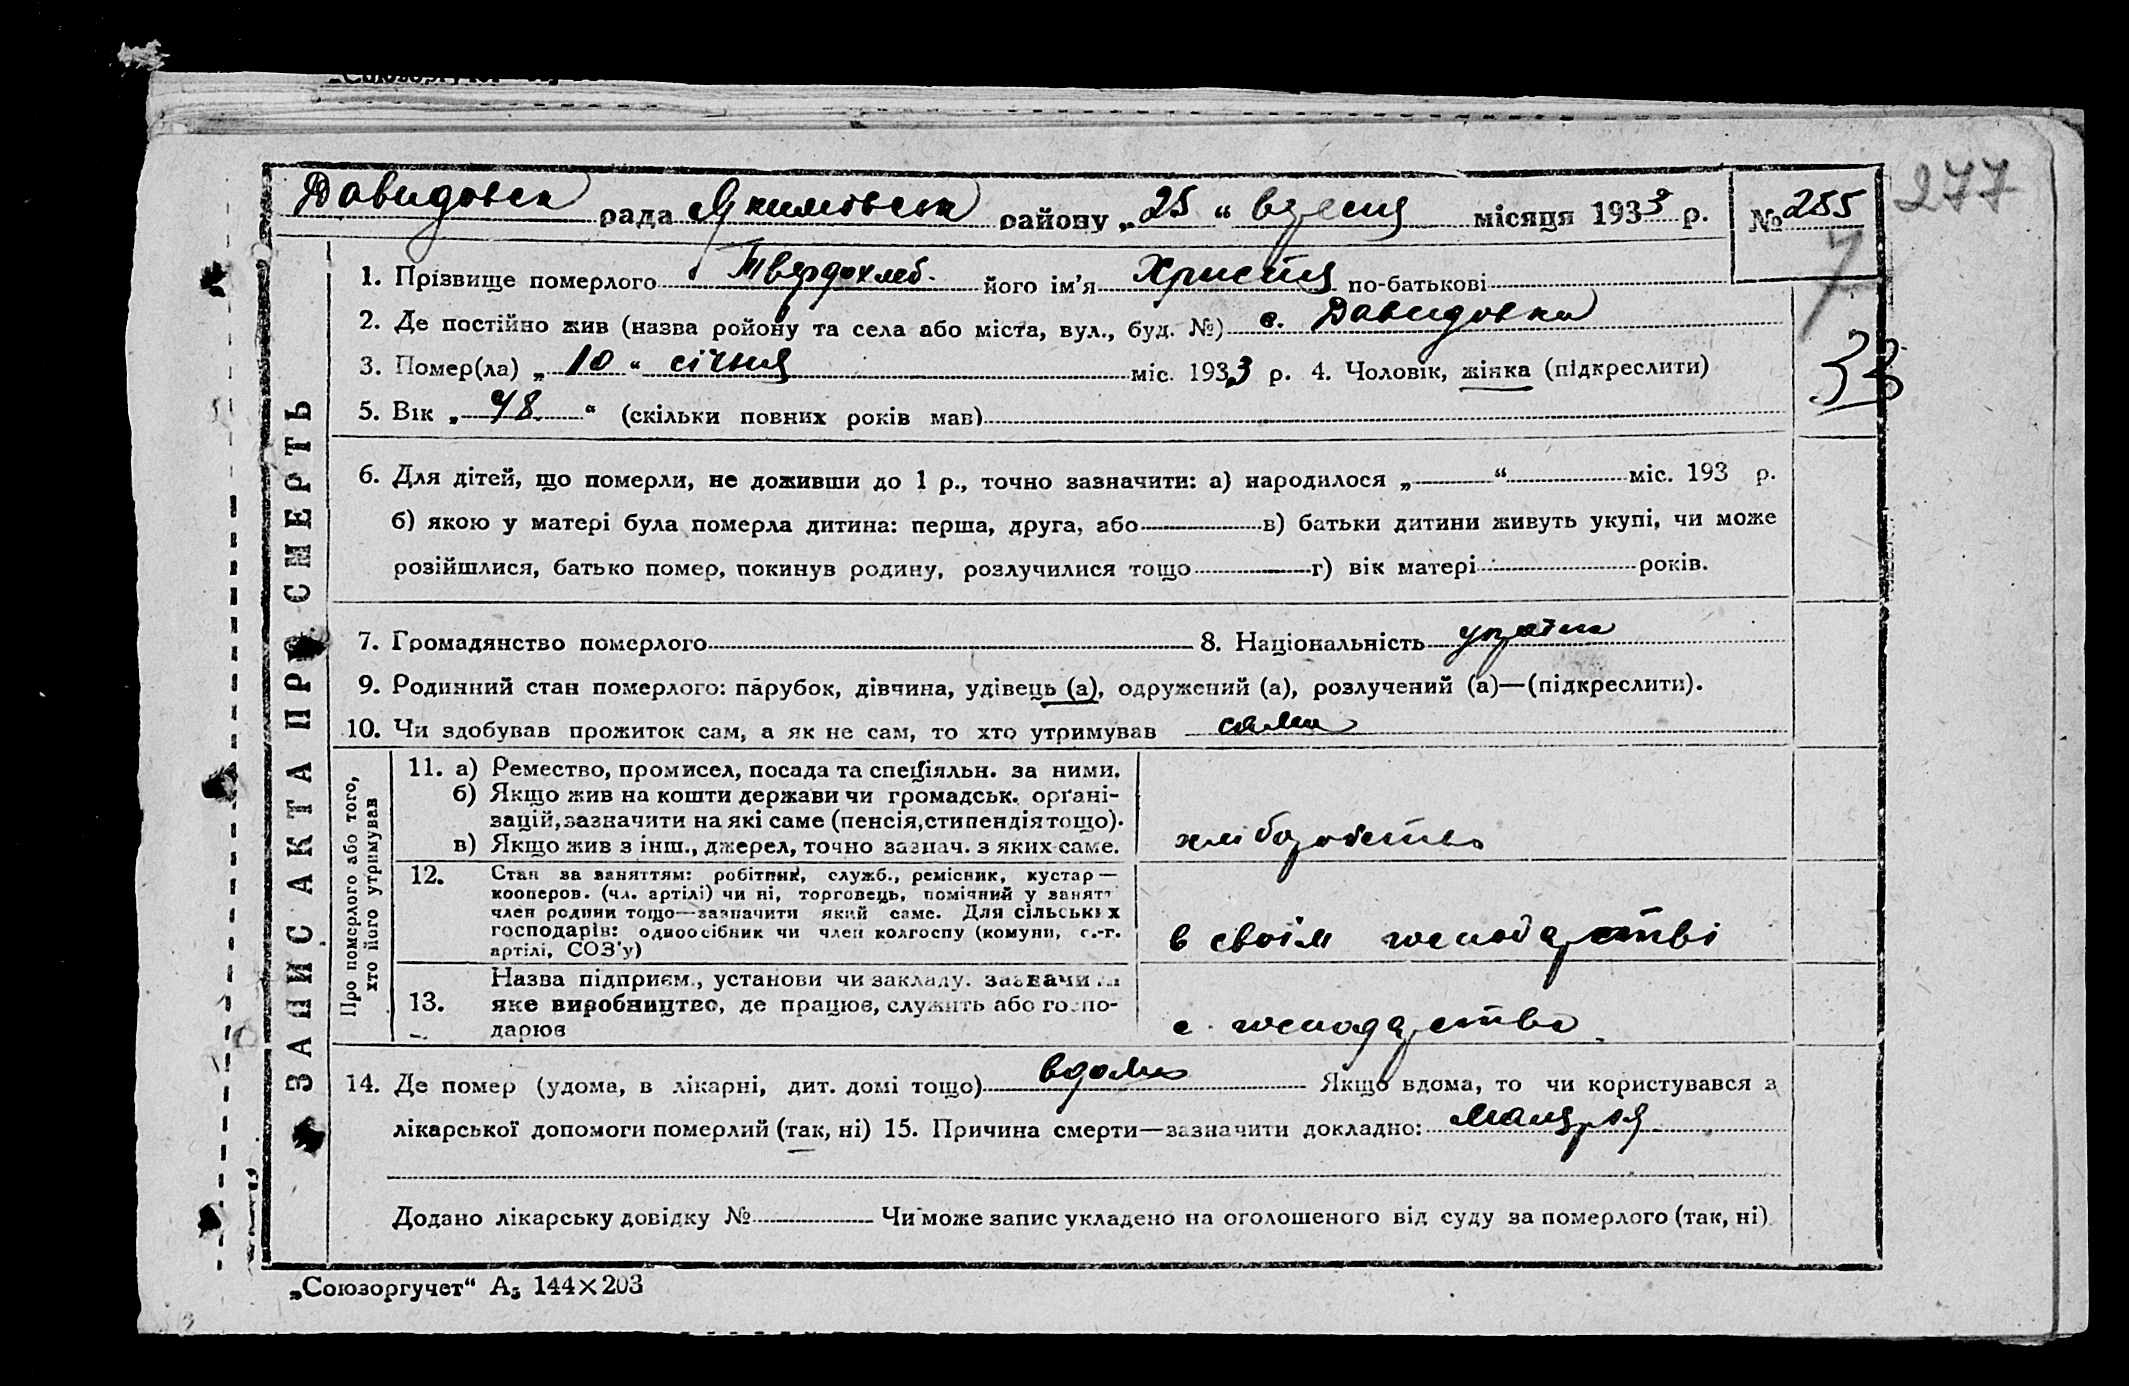 Давидовск рада Якимовськ району „25“ вересня місяця 1933 р. № 255
277
1. Прізвище померлого Твердохлеб його ім'я Христя по-батькові
2. Де постійно жив (назва ройону та села або міста, вул., буд. №) с. Давидовка
3. Помер(ла) „10“ січня міс. 1933 р. 4. Чоловік, жінка (підкреслити)
33
5. Вік „78“ (скільки повних років мав)
6. Для дітей, що померли, не доживши до 1 р., точно зазначити: а) народилося „ “ міс. 193 р.
б) якою у матері була померла дитина: перша, друга, або в) батьки дитини живуть укупі, чи може
розійшлися, батько помер, покинув родину, розлучилися тощо г) вік матері років.
7. Громадянство померлого 8. Національність
9. Родинний стан померлого: парубок, дівчина, удівець (а), одружений (а), розлучений (а)—(підкреслити).
10. Чи здобував прожиток сам, а як не сам, то хто утримував сама
ЗАПИС АКТА ПРО СМЕРТЬ
Про померлого або того,
хто його утримував
11. а) Ремество, промисел, посада та спеціяльн. за ними.
б) Якщо жив на кошти держави чи громадськ. органі-
зацій, зазначити на які саме (пенсія, стипендія тощо).
в) Якщо жив з інш., джерел, точно зазнач. з яких саме.
хліборобство
12. Стан за заняттям: робітник, служб., ремісник, кустар—
кооперов. (чл. артілі) чи ні, торговець, помічний у занятт
член родини тощо—зазначити який саме. Для сільських
господарів: одноосібник чи член колгоспу (комуни, с.-г.
артілі, СОЗ'у)
в своїм господарстві
13. Назва підприєм., установи чи закладу. зазначи
яке виробництво, де працює, служить або госпо-
дарює
с. господарство
14. Де помер (удома, в лікарні, дит. домі тощо) вдома Якщо вдома, то чи користувався з
лікарської допомоги померлий (так, ні) 15. Причина смерти—зазначити докладно:
Додано лікарську довідку № Чи може запис укладено на оголошеного від суду за померлого (так, ні)
„Союзоргучет“ А5 144×203